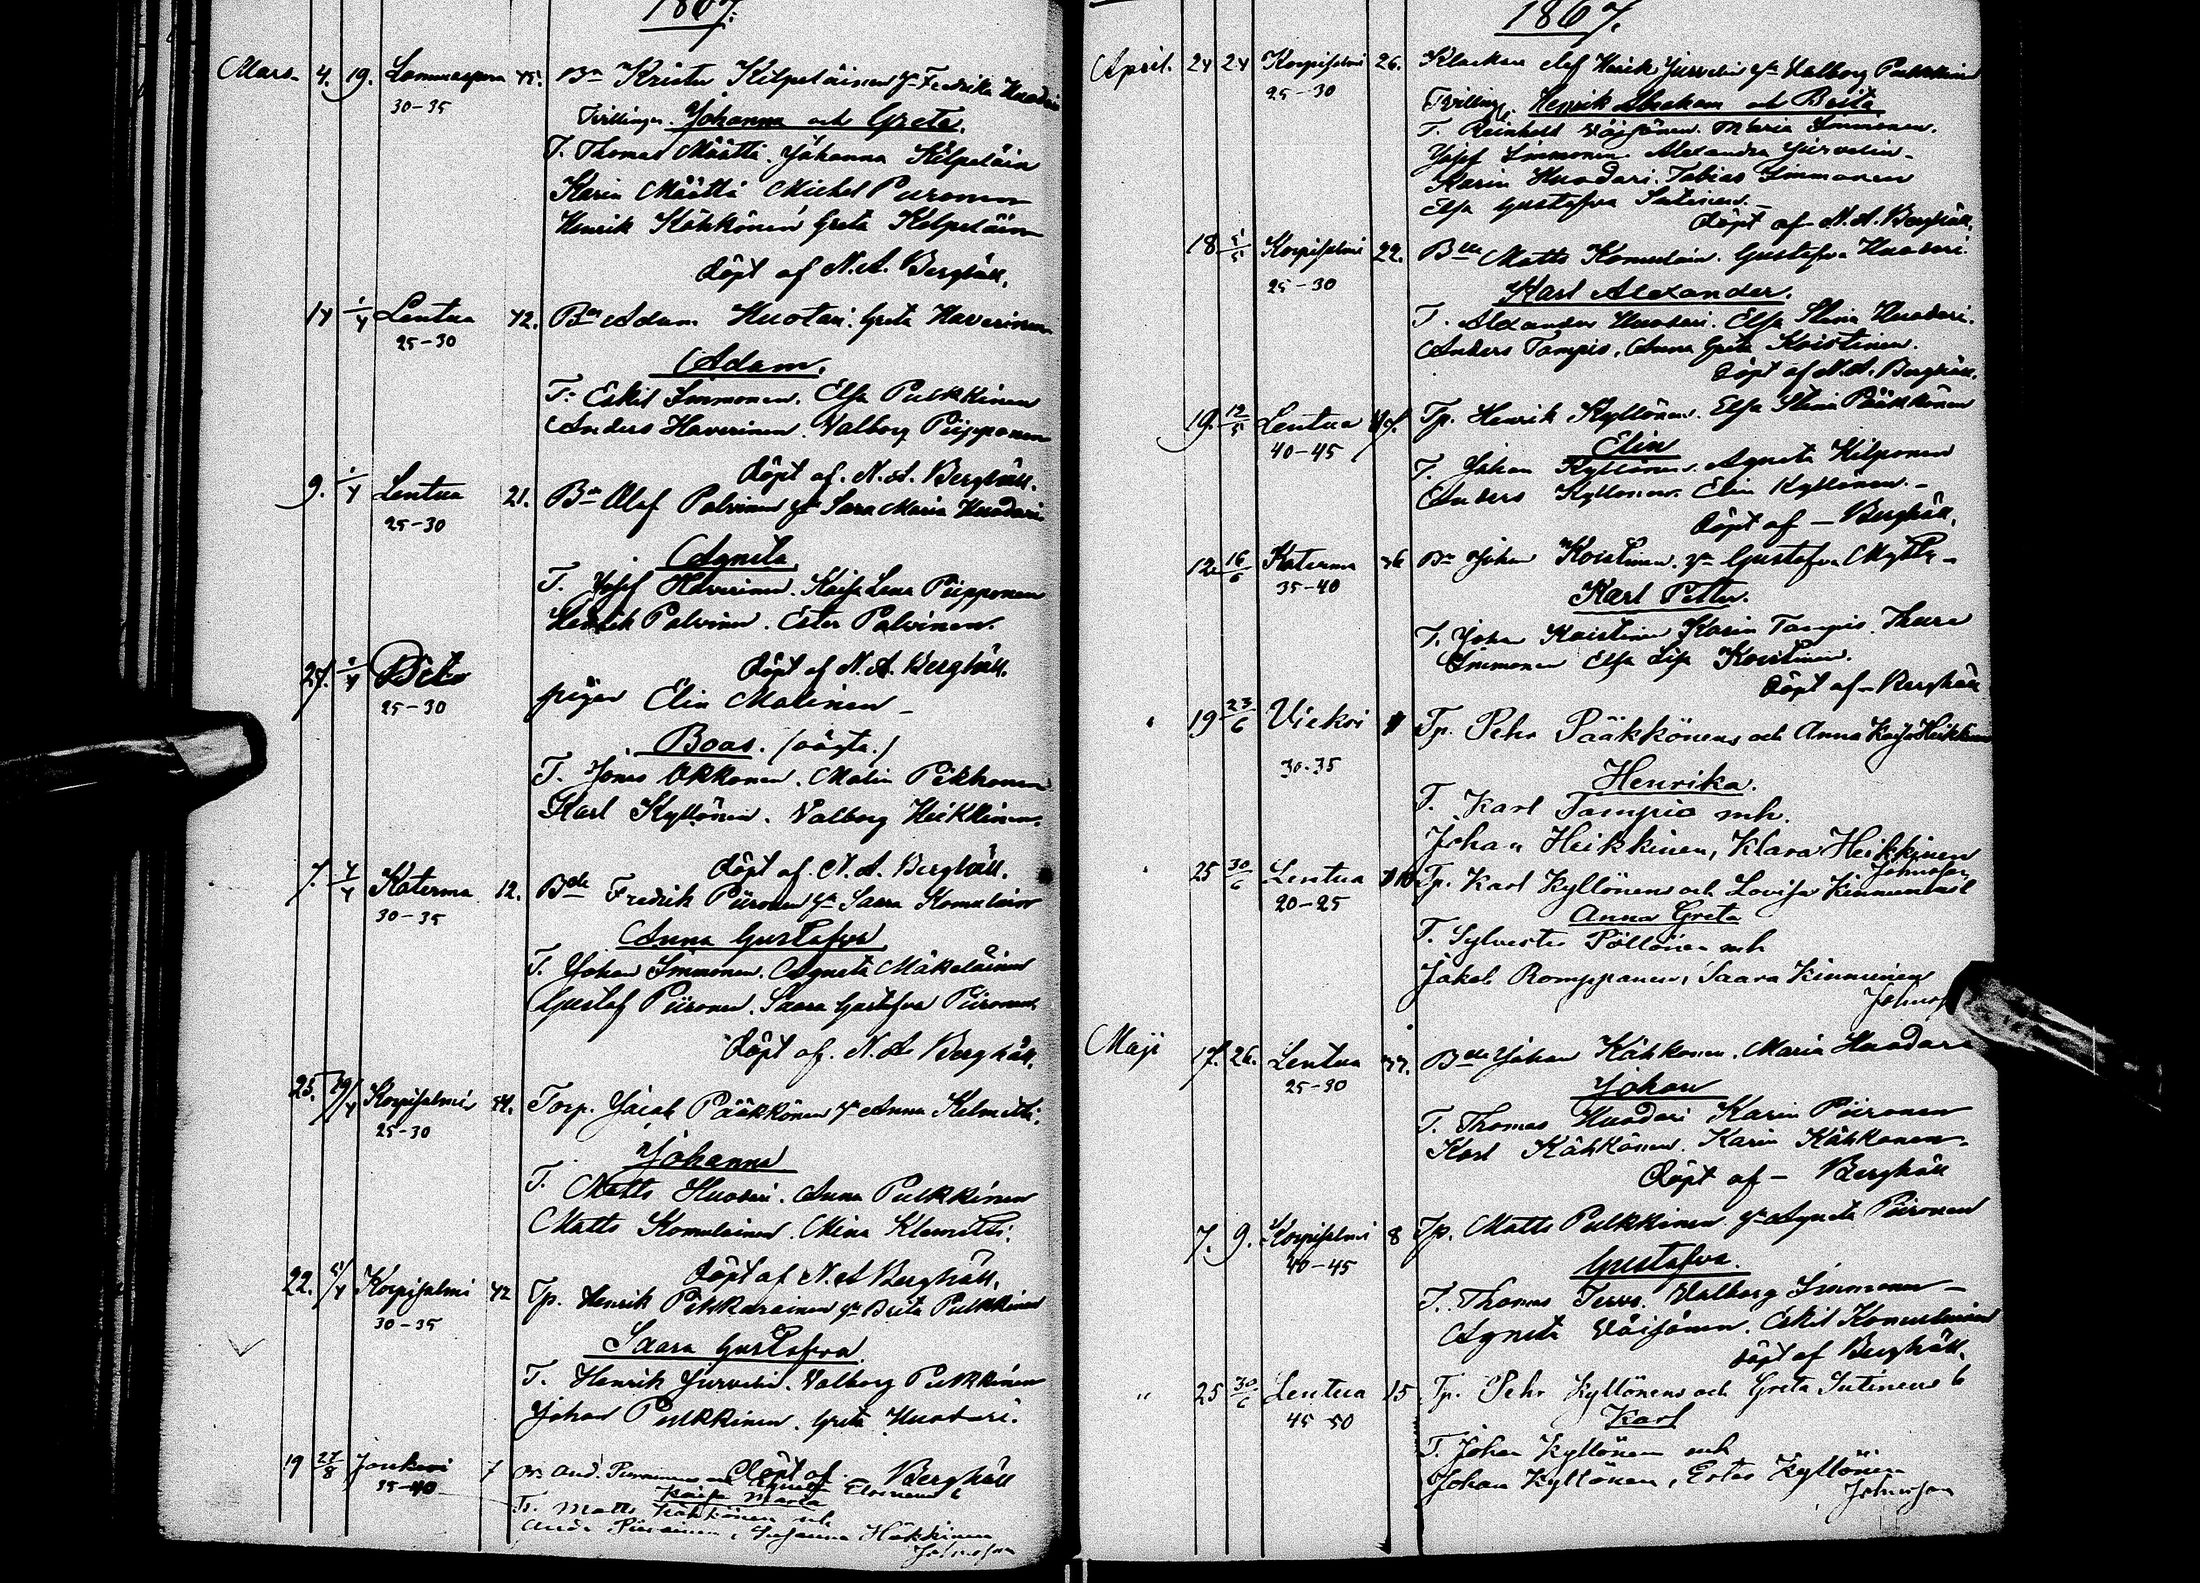 1867.
Mars. 4. 19. Lammaspera 45. Bn Krister Kilpeläinen Fredrika Huodari
30-35
Tvillingar. Johanna och Greta.
T. Thomas Määttä. Johanna Kilpeläin
Karin Määttä Michel Piironen
Henrik Kähkönen Greta Kilpeläin
döpt af N. A. Berghäll.
14 1/4 Lentua 42. Bn Adam Huotari. Greta Haverinen
25-30
Adam.
T. Eskil Immonen. Elsa Pulkkinen
Anders Haverinen. Valborg Piipponen
döpt af. N. A. Berghäll.
9. 1/4 Lentua 21. Bn Olof Palvinen Sara Maria Huodari
25-30
Agneta.
T. Josef Haverinen. Kajsa Lena Piipponen
Henrik Palvinen. Ester Palvinen.
döpt af N. A. Berghäll.
27. 1/4 Dito pigan Elin Malinen
25-30
Boas. (oägta.)
T. Jonas Okkonen. Malin Pikkonen
Karl Kyllönen. Valborg Heikkinen.
döpt af. N. A. Berghäll.
7. 7/4 Katerma 12. Bde Fredrik Piironen Saara Komulain
30-35
Anna Gustafva
T. Johan Immonen. Agneta Mäkeläinen
Gustaf Piironen. Saara Gustafva Piironen.
döpt af. N. A. Berghäll.
25. 19/4 Korpisalmi 44. Torp. Jacob Pääkkönen Anna Kelmetti.
25-30
Johanna
T. Matts Huodari. Anna Pulkkinen
Matts Komulainen. Mina Klemetti.
döpt af N. A Berghäll.
22. Korpisalmi 42 Tp. Henrik Pikkarainen Brita Pulkkinen
30-35
Saara Gustafva.
T. Henrik Jurvelin. Valborg Pulkkinen
Johan Pulkkinen. Greta Huodari.
döpt af. Berghäll
19 27/8 Jonkeri 7 And.
35-40
Kaisa Maria
T. Matts Kähkönen mh
And. Piirainen, Susanna Häkkinen
Johnsson
1867.
April. 24 24 Korpisalmi 26. Olof Henrik Jurvelin Valborg Pulkkinen
25-30
Tvilling. Henrik Abraham och Brita
T. Reinhold Väisänen. Maria Immonen.
Josef Immonen. Alexandra Jurvelin.
Karin Huodari. Tobias Immonen
Elsa Gustafva Sutinen.
döpt af N. A. Berghäll.
18 5/5 Korpisalmi 22. Bde Matts Komulain. Gustafva Huodari.
25-30
Karl Alexander.
T. Alexander Huodari. Elsa Stina Huodari.
Anders Tampio, Anna Greta Koistinen.
döpt af N. A. Berghäll.
19. 12/5 Lentua Tp. Henrik Kyllönen. Elsa Stina Pääkkönen
40-45
Elin
T. Johan Kyllönen. Agneta Kilponen
Anders Kyllönen. Elin Kyllönen.
döpt af — Berghäll.
12. 16/6 Katerma 36 Bn Johan Koistinen. Gustafva Mylly
35-40
Karl Petter.
T. Johan Koistinen Karin Tampio. Thure
Immonen Elsa Lisa Koistinen.
döpt af — Berghäll
19 23/6 Vieksi Tp. Pehr Pääkkönens och Anna Kajsa Heikkinen
30-35
Henrika.
T. Karl Tampio mh.
Johan Heikkinen, Klara Heikkinen
Johnsson
25 30/6 Lentua Tp. Karl Kyllönens och Lovisa Kinnunens b
20-25
Anna Greta
T. Sylvester Pöllönen mh
Jakob Romppanen, Saara Kinnunen
Johnss
Maji 17. 26. Lentua 37. Bde Johan Kähkönen. Maria Huodari
25-30
Johan
T. Thomas Huodari Karin Piironen
Karl Kähkönen. Karin Kähkönen.
döpt af — Berghäll
7. 9. Korpisalmi 8 Tp. Matts Pulkkinen Agneta Piironen
40-45
Gustafva.
T. Thomas Tervo. Valborg Immonen
Agneta Väisänen. Eskil Komulainen
döpt af Berghäll.
" 25 30/6 Lentua 15 Tp. Pehr Kyllönens och Greta Sutinens b
45 50
Karl
T. Johan Kyllönen mh
Johan Kyllönen, Ester Kyllönen
Johnsson